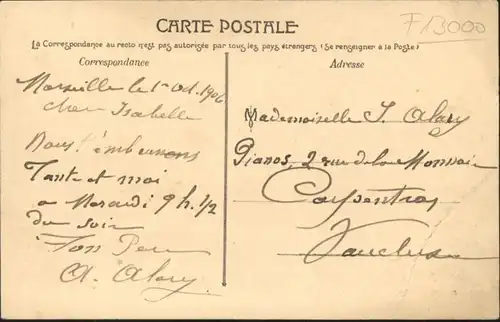 CARTE POSTALE
F13000
La Correspondance au recto n'est pas autorisée par tous les pays étrangers (Se renseigner à la Poste)
Correspondance
Adresse
Marseille le 1er Oct. 1906
chere Isabelle
Nous t'embrassons
Tante et moi
a Mercredi 9 h. 1/2
du soir
Ton Pere
A. Alary
Mademoiselle I. Alary
Pianos, 2 rue de la Monnaie
Carpentras
Vaucluse